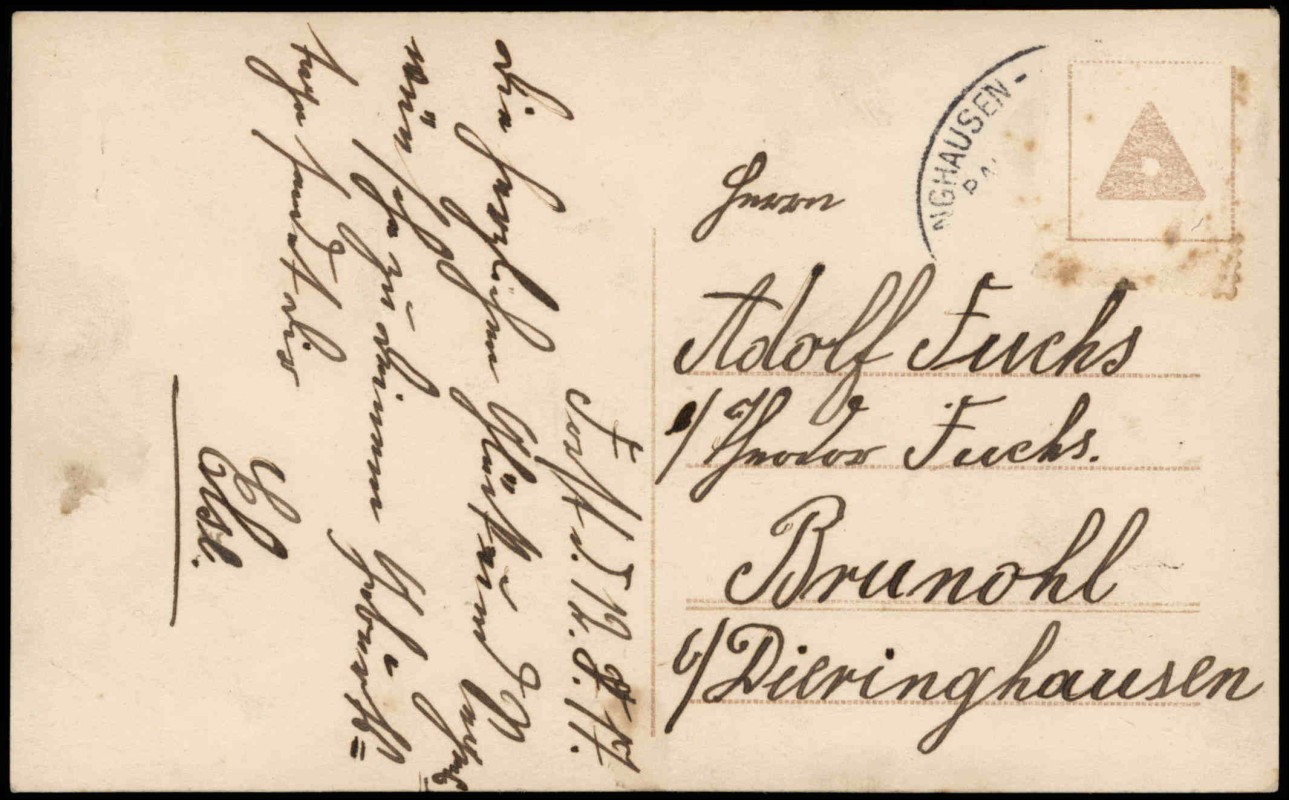 NGHAUSEN -
Herrn
Adolf Fuchs
b/ Theodor Fuchs.
Brunohl
b/ Dieringhausen
d. 12. 8. 17.
Die herzlichsten Glück und
wünsche zu deinem
Geburts=
tage sendet dir
Elsl.